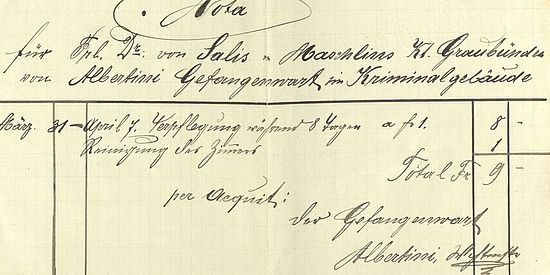 Nota
für Frl. Dr. von Salis – Maschlins Kt. Graubünden
von Albertini Gefangenwart im Kriminalgebäude
März. 31 – April 7. Verpflegung während 8 Tagen a fr 1. 8 –
Reinigung des Zimmers 1
Total Fr 9 –
per Acquit:
Der Gefangenwart
Albertini,